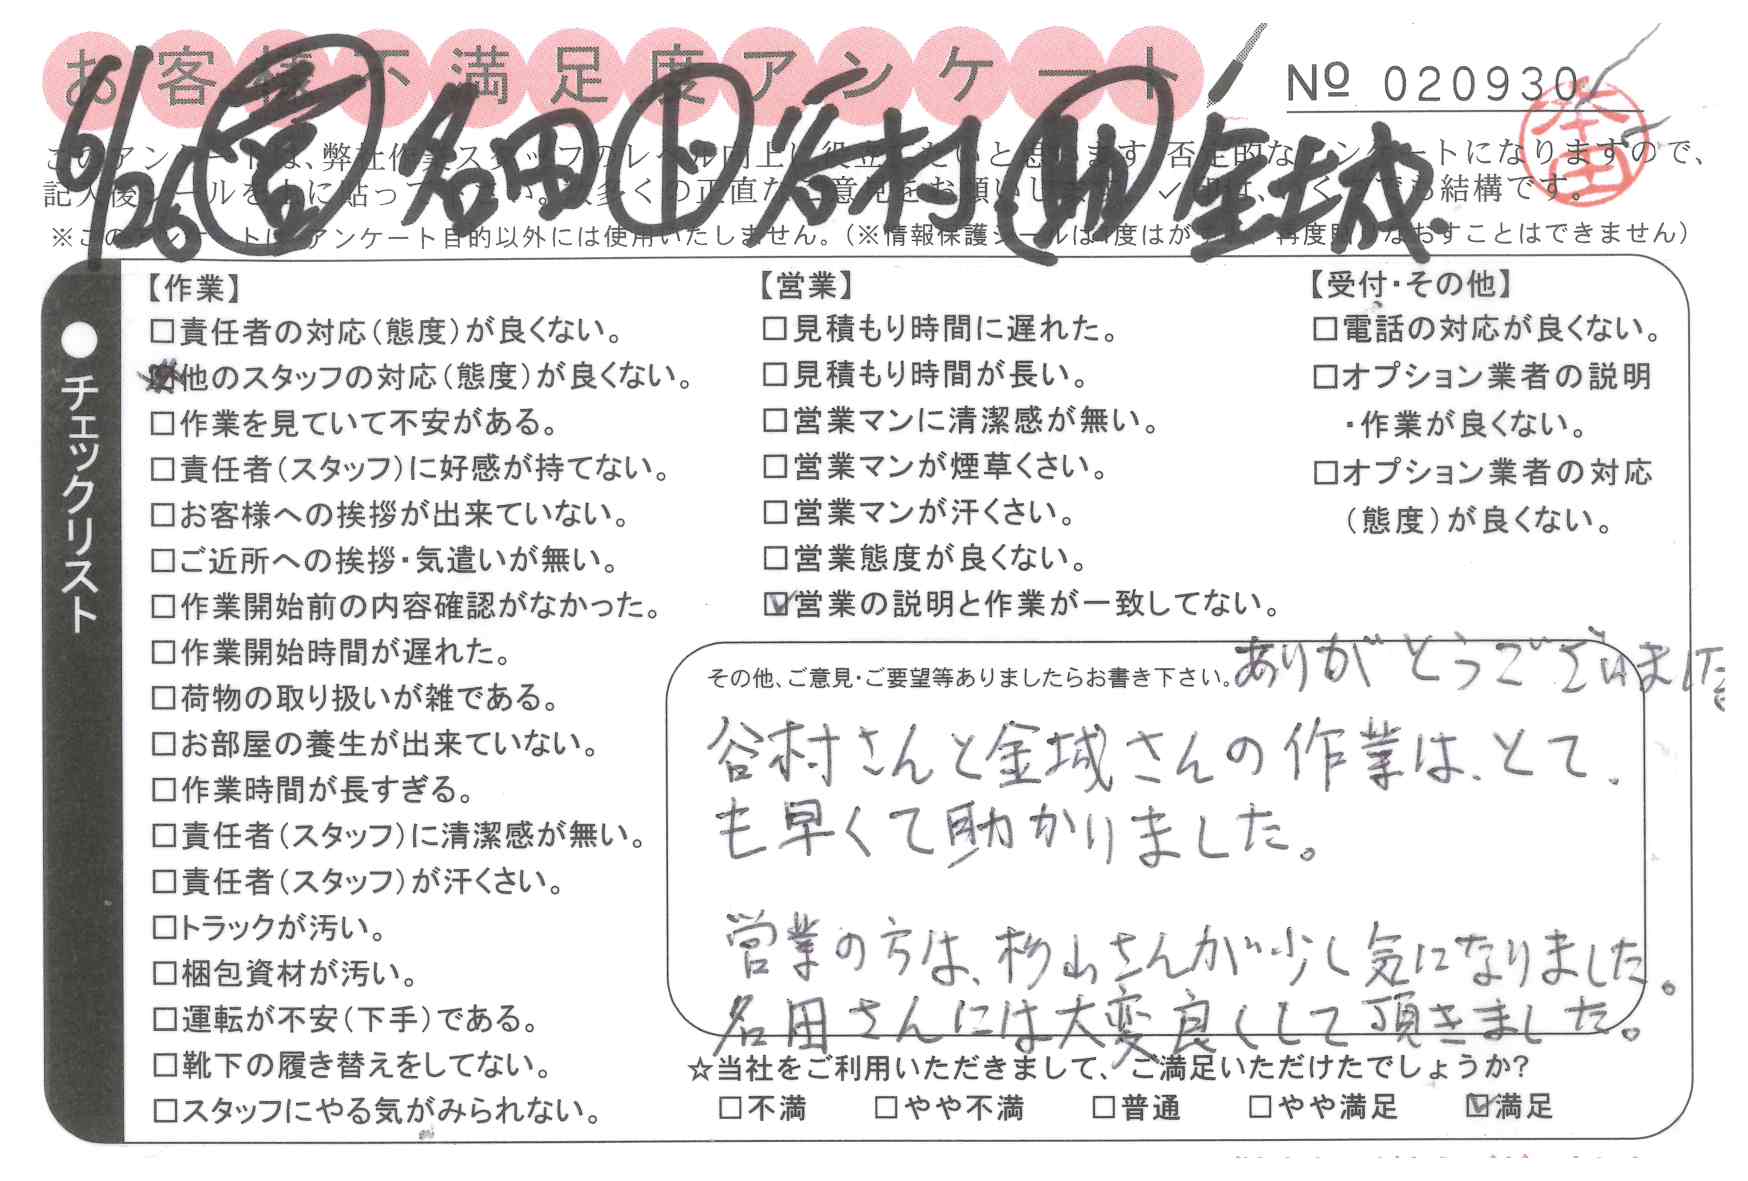 お客様不満足度アンケート
Nº 020930
6/26 営 名田 ド 谷村 助 金城
このアンケートは、弊社作業スタッフのレベル向上に役立てたいと思います。否定的なアンケートになりますので、
※このアンケートは、アンケート目的以外には使用いたしません。（※情報保護シールは1度はがすと、再度貼りなおすことはできません）
●チェックリスト
【作業】
□責任者の対応（態度）が良くない。
他のスタッフの対応（態度）が良くない。
□作業を見ていて不安がある。
□責任者（スタッフ）に好感が持てない。
□お客様への挨拶が出来ていない。
□ご近所への挨拶・気遣いが無い。
□作業開始前の内容確認がなかった。
□作業開始時間が遅れた。
□荷物の取り扱いが雑である。
□お部屋の養生が出来ていない。
□作業時間が長すぎる。
□責任者（スタッフ）に清潔感が無い。
□責任者（スタッフ）が汗くさい。
□トラックが汚い。
□梱包資材が汚い。
□運転が不安（下手）である。
□靴下の履き替えをしてない。
□スタッフにやる気がみられない。
【営業】
□見積もり時間に遅れた。
□見積もり時間が長い。
□営業マンに清潔感が無い。
□営業マンが煙草くさい。
□営業マンが汗くさい。
□営業態度が良くない。
☑営業の説明と作業が一致してない。
【受付・その他】
□電話の対応が良くない。
□オプション業者の説明
・作業が良くない。
□オプション業者の対応
（態度）が良くない。
その他、ご意見・ご要望等ありましたらお書き下さい。
ありがとうございました。
谷村さんと金城さんの作業は、とて
も早くて助かりました。
営業の方は、杉山さんが少し気になりました。
名田さんには大変良くして頂きました。
☆当社をご利用いただきまして、ご満足いただけたでしょうか?
□不満 □やや不満 □普通 □やや満足 ☑満足